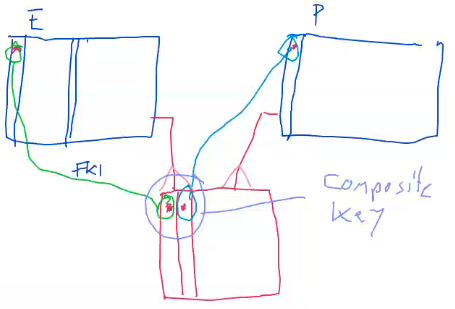 E
P
FK1
Composite
key